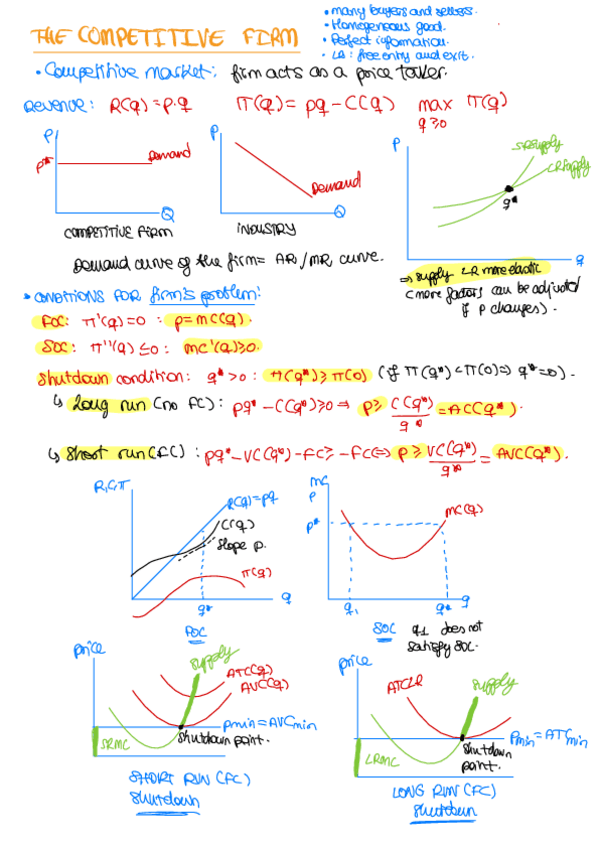 • many buyers and sellers.
• Homogeneous good.
THE COMPETITIVE FIRM
• Perfect information.
• LR: free entry and exit.
• Competitive market: firm acts as a price taker.
Revenue: R(q)=p·q π(q)= pq-C(q) max π(q)
q≥0
P
P*
Demand
Q
COMPETITIVE FIRM
P
Demand
Q
INDUSTRY
P
SRSupply
LRSupply
q*
q
Demand curve of the firm= AR/MR curve.
⇒ supply LR more elastic
(more factors can be adjusted
if P changes).
• CONDITIONS FOR firm's problem:
FOC: π'(q)=0 : p=mc(q).
SOC: π''(q)≤0: mc'(q)≥0.
Shutdown condition: q*>0: π(q*)≥π(0) (if π(q*)<π(0)⇒ q*=0).
↳ Long run (no FC): pq*-C(q*)≥0 ⇒ p≥ C(q*)/q* =AC(q*).
↳ Short run (FC): pq*-VC(q*)-FC≥-FC⇔ p≥ VC(q*)/q* = AVC(q*).
R,C,π
R(q)=pq
C(q)
slope p.
π(q)
q*
q
FOC
mc
P
P*
mc(q)
q1
q*
q
SOC
q1 does not
satisfy SOC.
price
supply
ATC(q)
AVC(q)
Pmin=AVCmin
SRMC
Shutdown point.
SHORT RUN (FC)
Shutdown
price
ATCLR
supply
Pmin=ATCmin
LRMC
Shutdown
point.
q
LONG RUN (FC)
Shutdown